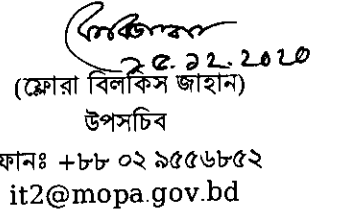 ২৫.১২.2020
(ফ্লোরা বিলকিস জাহান)
উপসচিব
ফোনঃ +৮৮ ০২ ৯৫৫৬৮৫২
it2@mopa.gov.bd